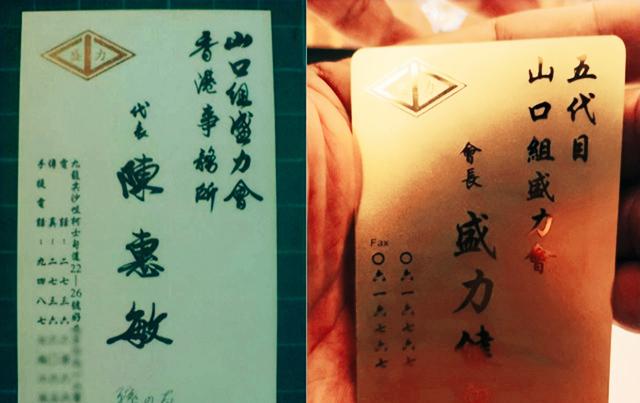 山口組盛力會
香港事務所
代表
陳惠敏
九龍尖沙咀柯士甸道22—26號好
電話：二七三六
傳真：二七三六
手提電話：九四八七
盛力
五代目
山口組盛力會
會長
盛力健
Fax
〇六一六七六七
〇六一六七六七